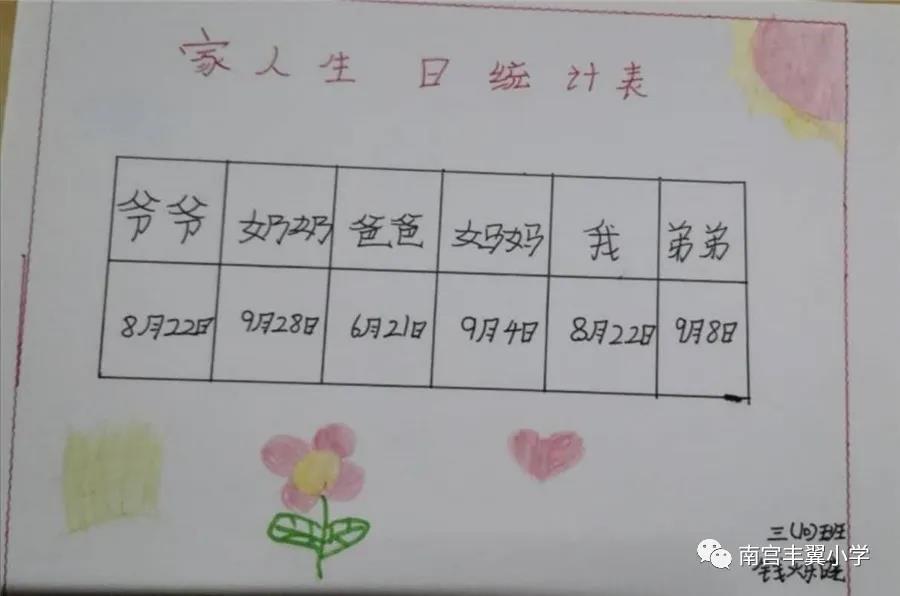 家人生日统计表
爷爷 奶奶 爸爸 妈妈 我 弟弟
8月22日 9月28日 6月21日 9月4日 8月22日 9月8日
三(10)班
南宫丰翼小学